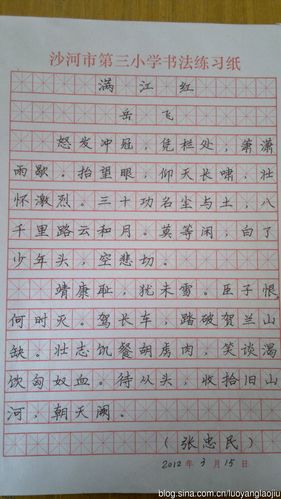 沙河市第三小学书法练习纸
满江红
岳飞
怒发冲冠，凭栏处，箫潇
雨歇。抬望眼，仰天长啸，壮
怀激烈。三十功名尘与土，八
千里路云和月。莫等闲，白了
少年头，空悲切。
靖康耻，犹未雪。臣子恨，
何时灭。驾长车，踏破贺兰山
缺。壮志饥餐胡虏肉，笑谈渴
饮匈奴血。待从头，收拾旧山
河，朝天阙。
（张忠民）
2012年3月15日
blog.sina.com.cn/luoyanglaojiu